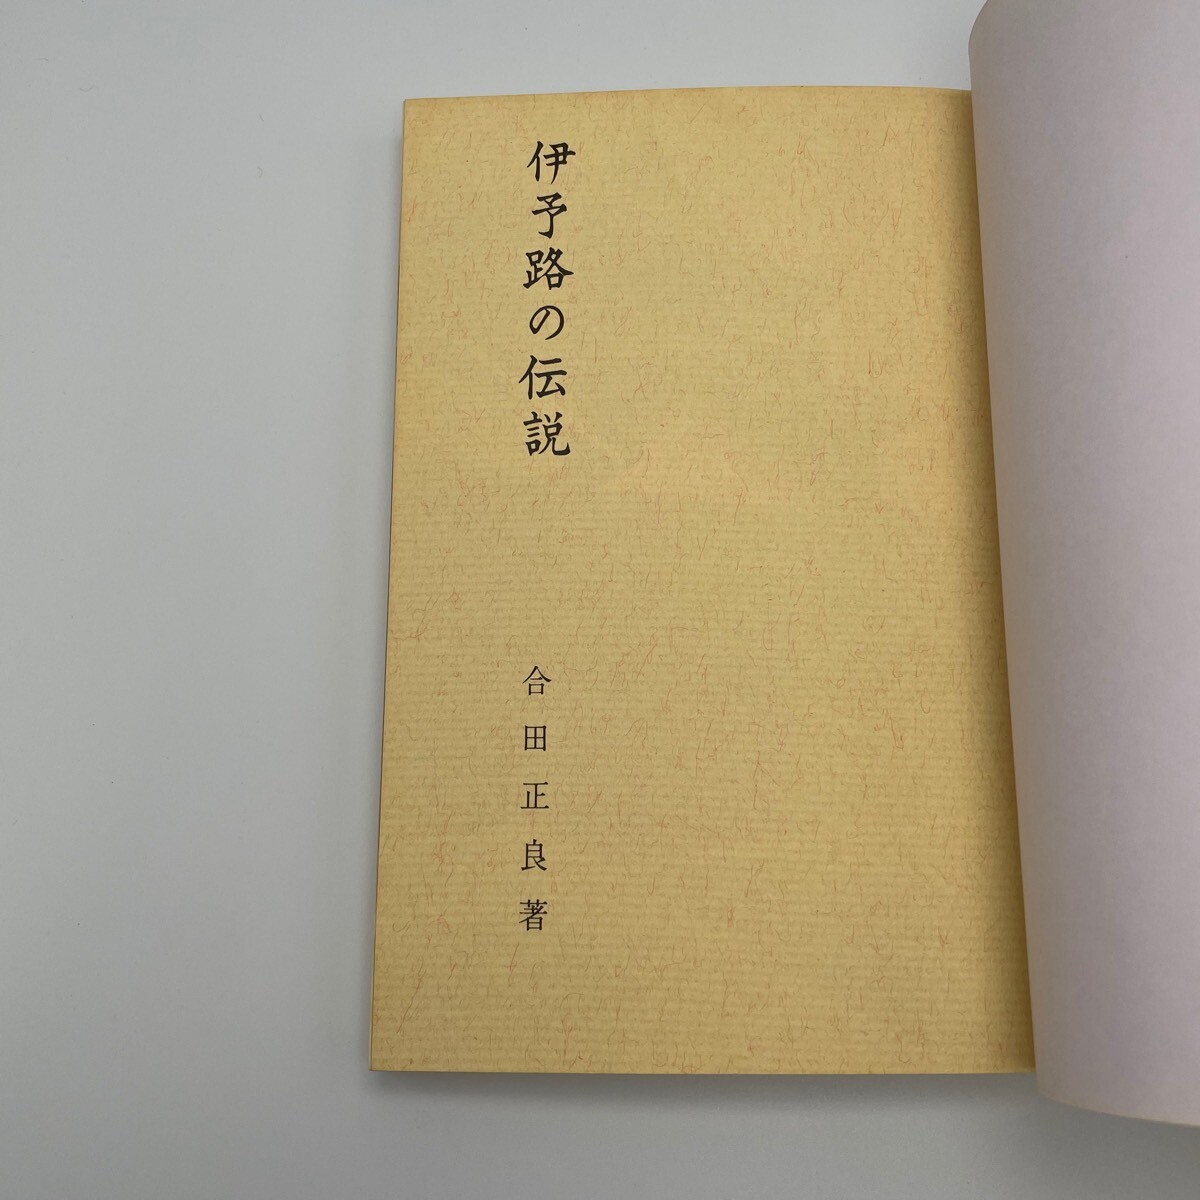 伊予路の伝説
合田正良著